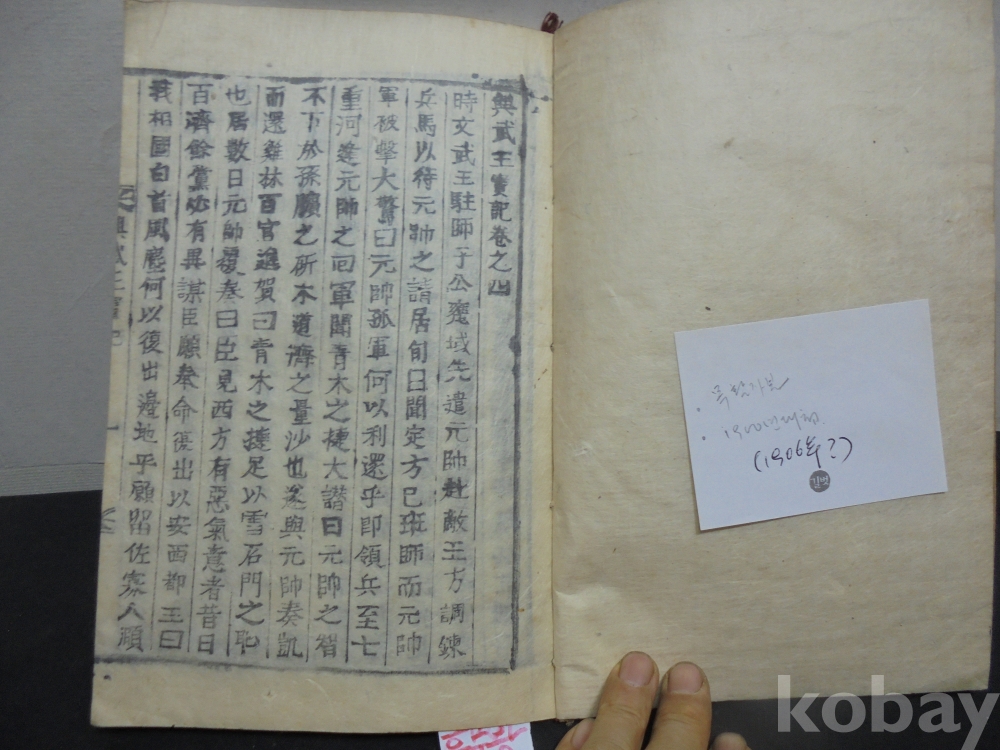 興武王實記卷之四
時文武王駐師于公䨥域先遣元帥赴敵王方調鍊
兵馬以待元帥之請居旬日聞定方已班師而元帥
軍被擊大驚曰元帥孤軍何以利還乎即領兵至七
重河逢元帥之回軍聞青木之捷大讃曰元帥之智
不下於孫臏之斫木道濟之量沙也遂與元帥奏凱
而還雞林百官進賀曰青木之捷足以雪石門之恥
也居數日元帥覆奏曰臣見西方有惡氣意者昔日
百濟餘黨必有異謀臣願奉命復出以安西都王曰
我相國白首風塵何以復出邊地乎願留佐寡人願
興武王實記
목활자본
1900년대초
(1906年?)
kobay